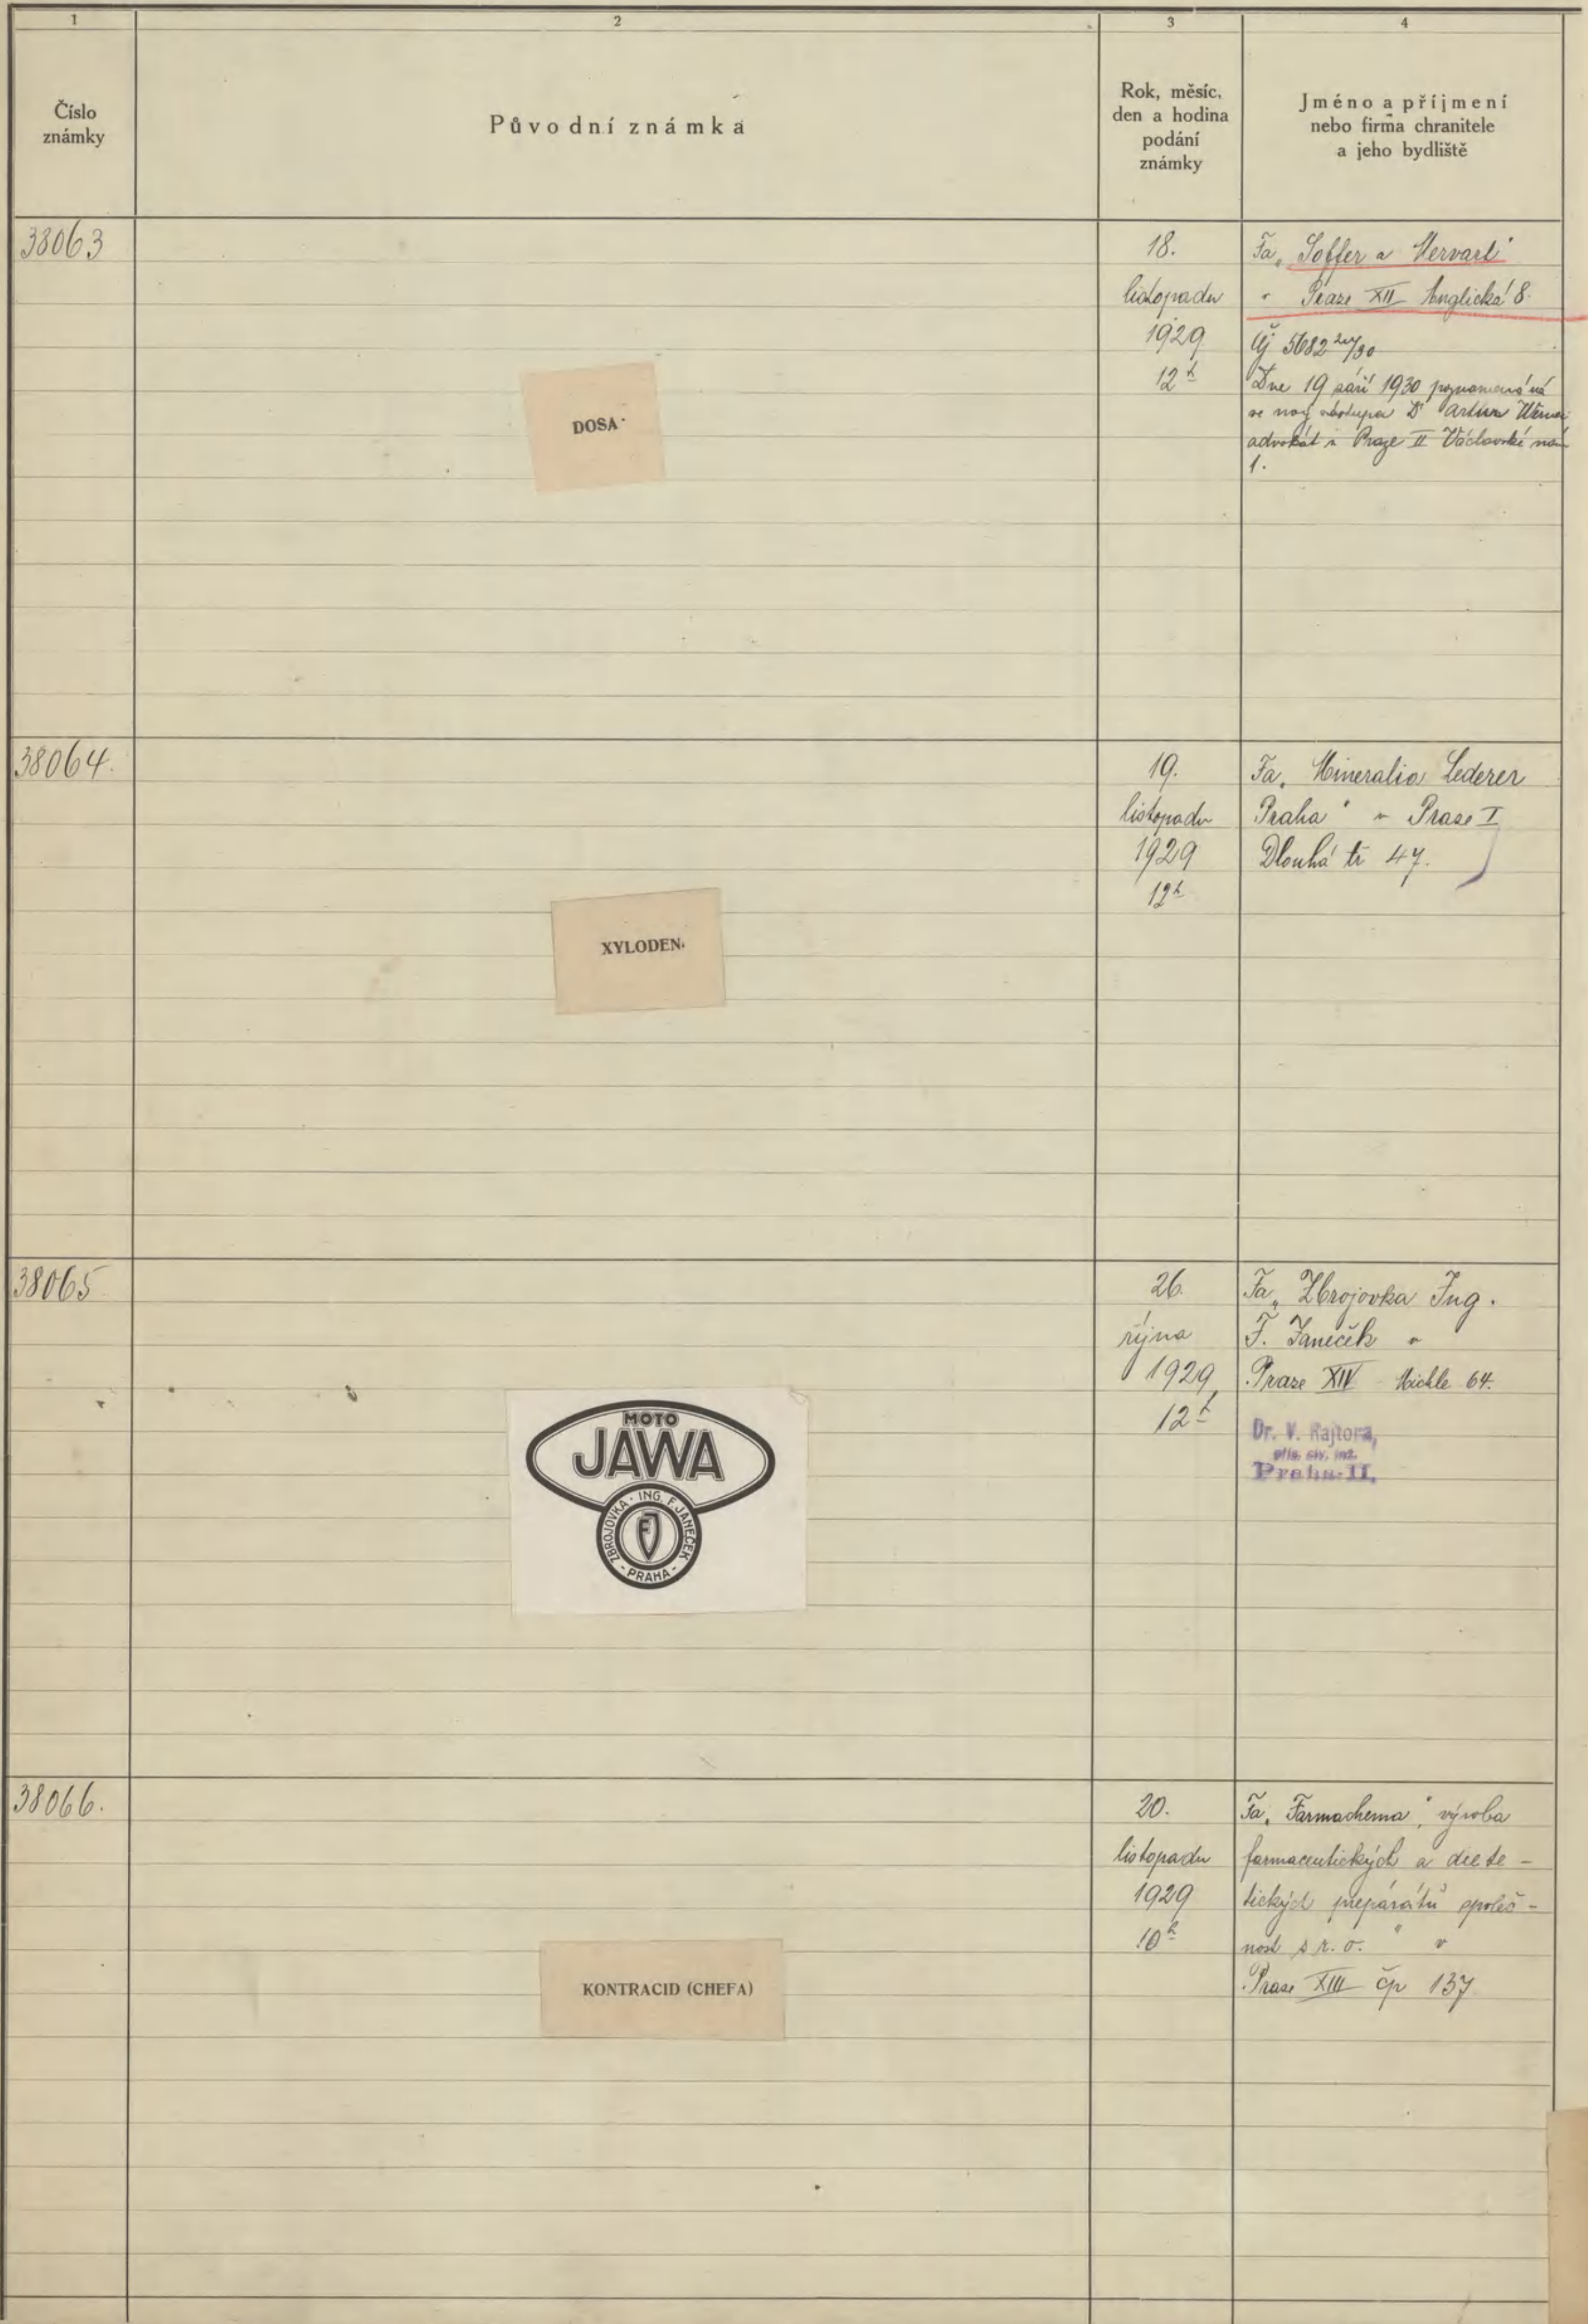 1
2
3
4
Číslo
známky
Původní známka
Rok, měsíc,
den a hodina
podání
známky
Jméno a příjmení
nebo firma chranitele
a jeho bydliště
38063
DOSA
18.
listopadu
1929
12 h
Fa „Soffer a
v Praze XII Anglická 8.
Čj 5682
Dne 19 září 1930 poznamenává
se nový zástupce Dr Artur
advokát v Praze II Václavské nám
1.
38064.
XYLODEN.
19.
listopadu
1929
12 h
Fa „Mineralia Lederer
Praha" v Praze I
Dlouhá tř 47.
38065
MOTO
JAWA
ZBROJOVKA · ING. F. JANEČEK
- PRAHA -
26.
října
1929
12 h
Fa „Zbrojovka Ing.
F. Janeček v
Praze XIV Michle 64.
Dr. V. Rajtora,
Praha-II.
38066.
KONTRACID (CHEFA)
20.
listopadu
1929
10 h
Fa „Farmachema", výroba
farmaceutických a diete-
tických preparátů společ-
nost s r. o. " v
Praze XIII čp 137